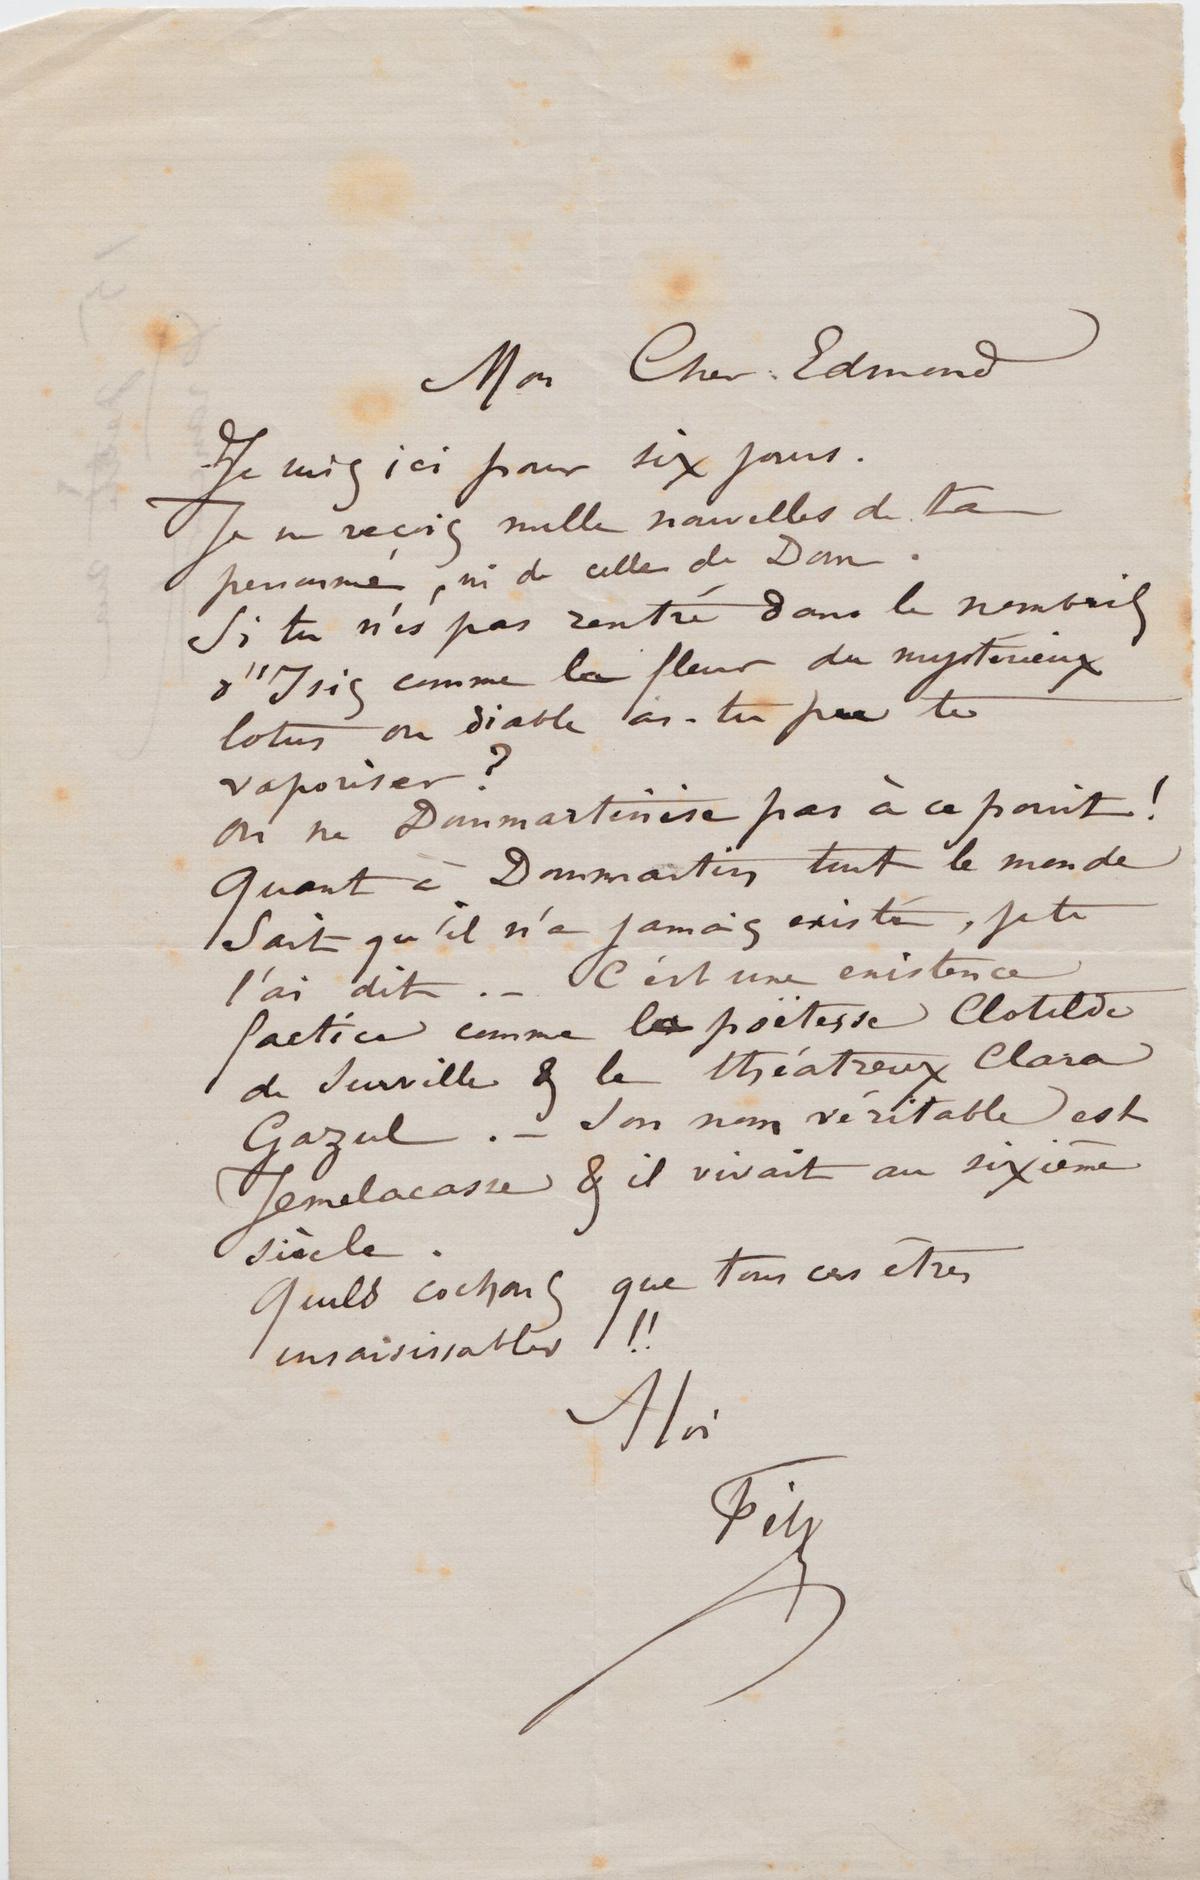 Mon Cher Edmond
Je suis ici pour six jours.
Je ne reçois nulle nouvelles de ta
personne, ni de celle de Dom.
Si tu n'es pas rentré dans le nombril
d''Isis comme la fleur du mystérieux
lotus où diable as-tu pu te
vaporiser ?
On ne Dommartinise pas à ce point !
Quant à Dommartin tout le monde
Sait qu'il n'a jamais existé, je te
l'ai dit. – C'est une existence
factice comme la poëtesse Clotilde
de Surville & le théatreux Clara
Gazul. – Son nom véritable est
Jemelacasse & il vivait au sixième
siècle.
Quels cochons que tous ces êtres
insaisissables !!
A toi
Fély